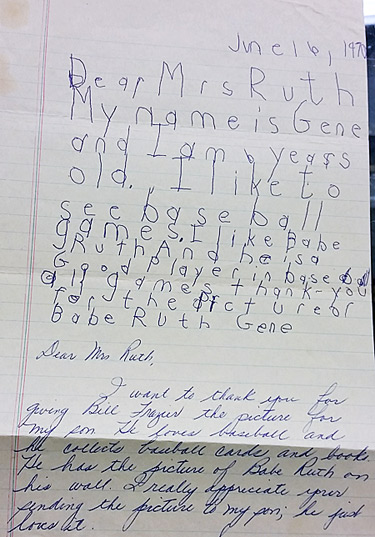 June 16, 197
Dear Mrs Ruth
My name is Gene
and I am 6 years
old. I like to
see base ball
games. I like Babe
Ruth And he is a
Good player in base ball
games thank-you
for the picture of
Babe Ruth Gene
Dear Mrs. Ruth,
I want to thank you for
giving Bill Frazier the picture for
my son. He loves baseball and
he collects baseball cards, and books
He has the picture of Babe Ruth on
his wall. I really appreciate your
sending the picture to my son; he just
loves it.